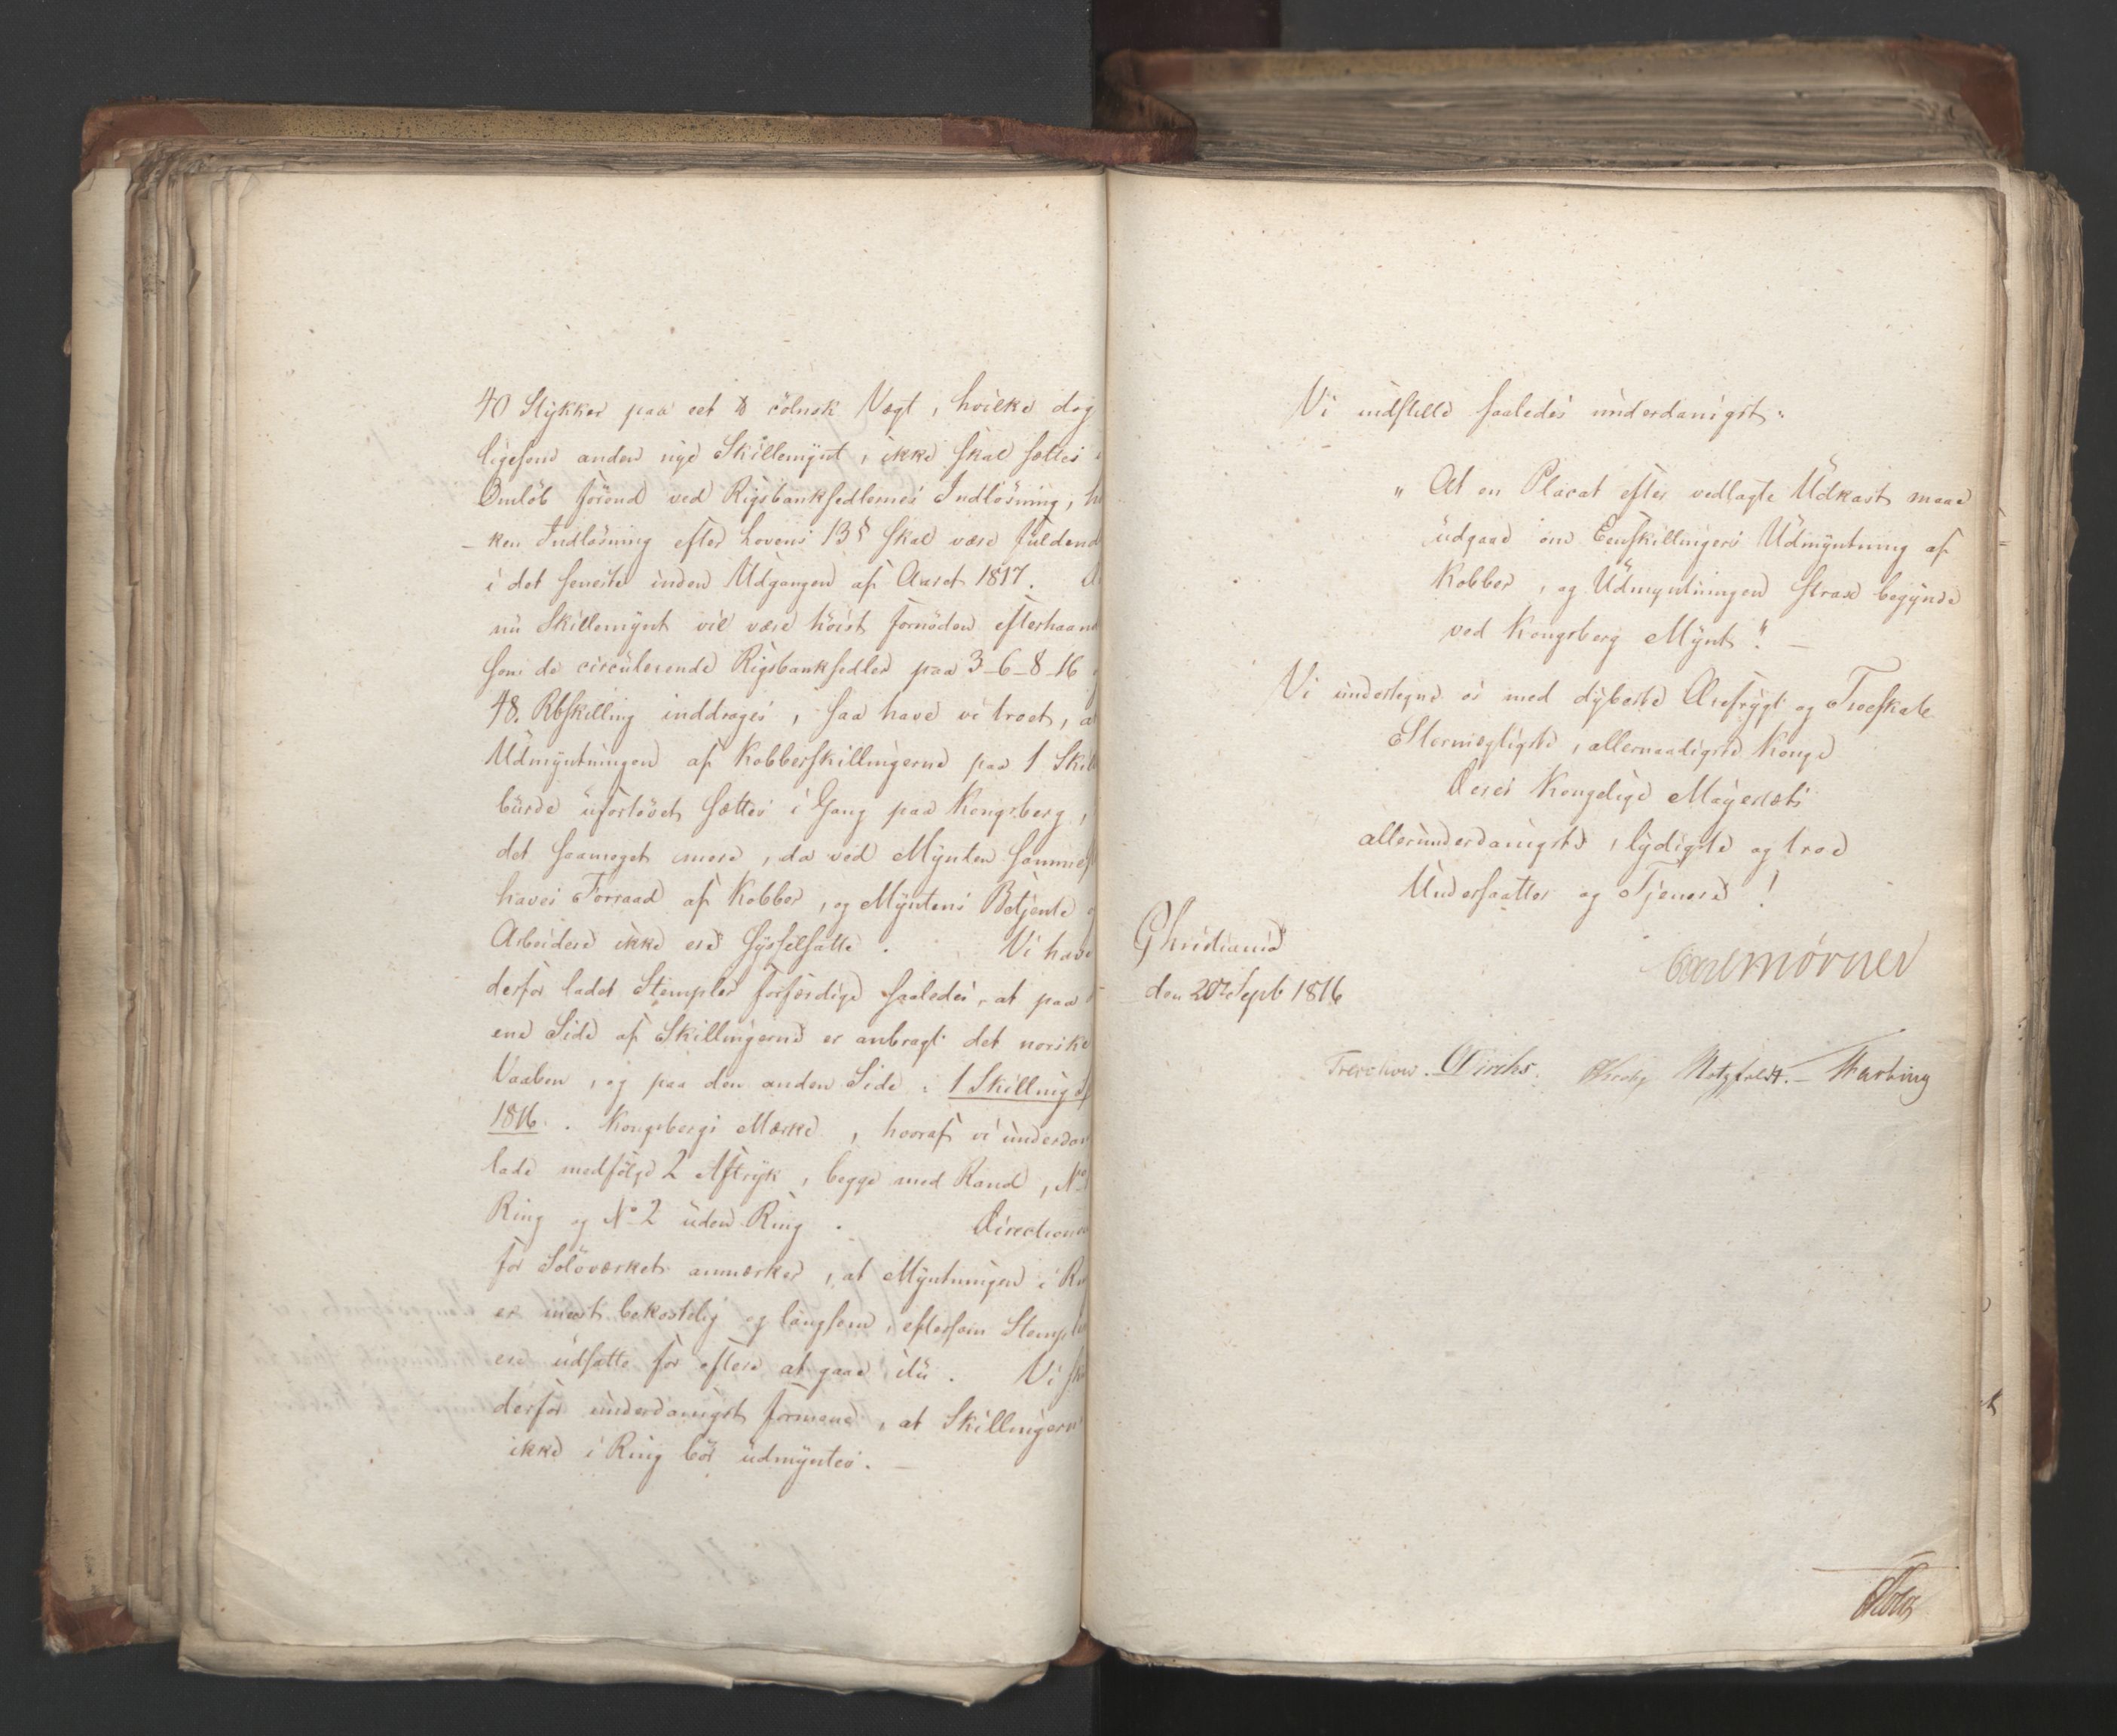 40 Stykker paa eet ℔ cölnsk Vægt, hvilke dog
ligesom anden nye Skillemynt, ikke skal sættes i
Omløb förend ved Rigsbanksedlernes Indløsning, h
-ken Indløsning efter Lovens 13§ skal være fuldend
i det seneste inden Udgangen af Aaret 1817.
nu Skillemynt vil være høist fornøden efterhaand
som de circulerende Rigsbanksedler paa 3-6-8-16
48. Rbskilling inddrages, saa have vi troet, a
Udmyntningen af Kobberskillingerne paa 1 Skil
burde ufortövet sættes i Gang paa Kongsberg,
det saameget mere, da ved Mynten sammest
haves Forraad af Kobber, og Myntens Betjente
Arbeidere ikke ere sysselsatte. Vi have
derfor ladet Stempler forfærdige saaledes, at paa
ene Side af Skillingerne er anbragt det norske
Vaaben, og paa den anden Side: 1 Skilling
1816. Kongsbergs Mærke, hvoraf vi underdan
lade medfølge 2 Aftryk, begge med Rand, No 1
Ring og No 2 uden Ring. Directionen
for Sölvværket anmærker, at Myntningen i Ri
er meest bekostelig og langsom, eftersom Stemple
ere udsatte for oftere at gaae itu. Vi sk
derfor underdanigst formene, at Skillingern
ikke i Ring bör udmyntes. —
Vi indstille saaledes underdanigst:
„At en Placat efter vedlagte Udkast maae
udgaae om Eenskillingers Udmyntning af
Kobber, og Udmyntningen strax begynde
ved Kongsberg Mynt“. —
Vi undertegne os med dybeste Ærefrygt og Troeskab
Stormægtigste, allernaadigste Konge
Deres Kongelige Mayestæts
allerunderdanigste, lydigste og troe
Undersaatter og Tjenere!
Christiania
den 20de Sept 1816
Carl Mörner
Treschow. Diriks. Motzfeldt. — Fasting